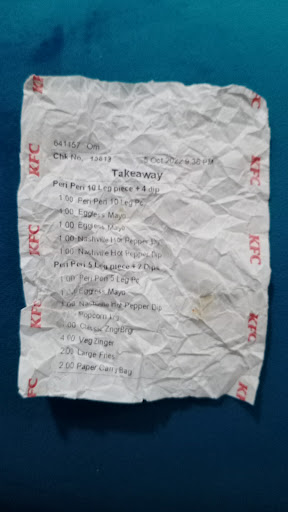 KFC
641157 Om
Chk No. 13613 5 Oct 2022 9:38 PM
Takeaway
Peri Peri 10 Leg piece + 4 dip
1.00 Peri Peri 10 Leg Pc
1.00 Eggless Mayo
1.00 Eggless Mayo
1.00 Nashville Hot Pepper Dip
1.00 Nashville Hot Pepper Dip
Peri Peri 5 Leg piece + 2 Dips
1.00 Peri Peri 5 Leg Pc
Eggless Mayo
1.00 Nashville Hot Pepper Dip
Popcorn
Classic Zinger
4.00 Veg Zinger
2.00 Large Fries
2.00 Paper Carry Bag
KFC
KFC
KFC
KFC
KFC
KFC